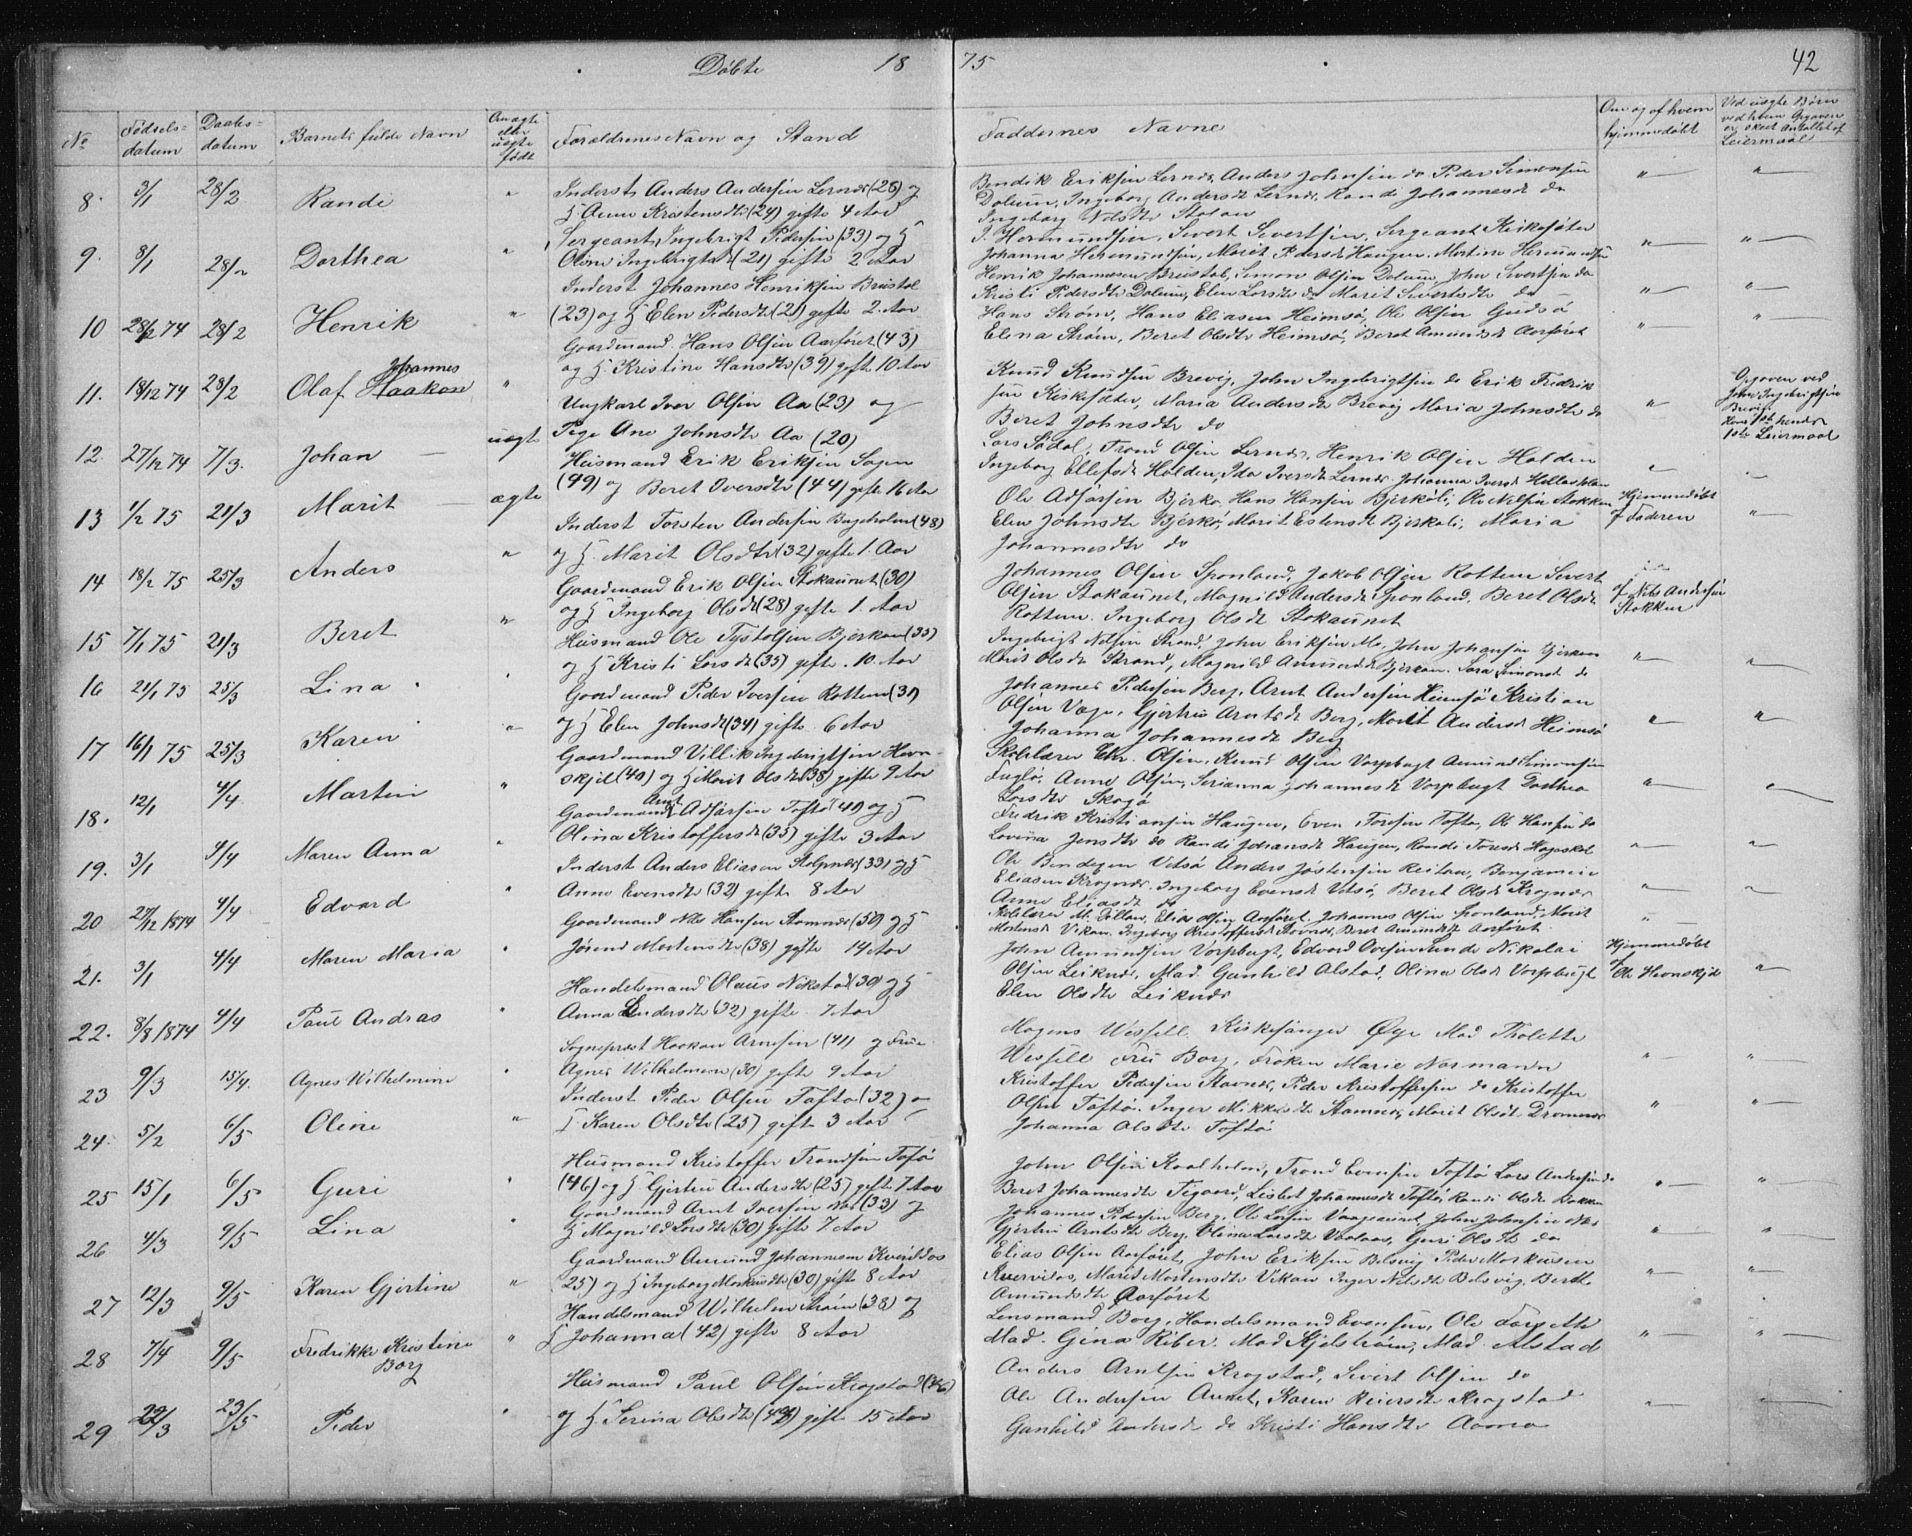 Døbte 18 75 42
No
Fødsels-
datum
Daabs-
datum
Barnets fulde Navn
Om ægte
eller
uægte
født
Forældrenes Navn og Stand
Faddernes Navne
Om og af hvem
hjemmedøbt
Ved uægte Børn
ved hvem Opgaven
er skeet Antallet af
Leiermaal
8. 3/1 28/2 Randi "
Inderst Anders Andersen Lernes (26) og
H Anne Kristensdtr (24) gifte 4 Aar
Bendik Eriksen Lernes, Anders Johnsen do Peder Simonsen
Dolum, Ingeborg Andersdt Lernes, Randi Johannesdt do
Ingeborg Nilsdtr Stolan
9. 8/1 28/2 Dorthea "
Sergeant Ingebrigt Pedersen (33) og H
Oline Ingebrigtsd (21) gifte 2 Aar
J. Hermundsen, Sivert Sivertsen, Sergeant Kirksæter
Johanna Hermundsen, Marit Pedersdt Haugen, Martine Hermundsen
10 28/6 74 28/2 Henrik "
Inderst Johannes Henriksen Breistol
(23) og H Elen Pedersdt (21) gifte 2 Aar
Henrik Johannesen Breistol, Simon Olsen Dolum, John Sivertsen do
Kristi Pedersdtr Dolum, Elen Larsdtr do Marit Sivertsdtr do
11. 18/12 74 28/2 Olaf Johannes Haakon "
Gaardmand Hans Olsen Aarføret (43)
og H. Kristine Hansdtr (39) gifte 10 Aar
Hans Strøm, Hans Eliasen Heimsø, Ole Olsen
Elena Strøm, Beret Olsdtr Heimsø, Beret Amundsdt Aarføret
12 27/12 74 7/3. Johan uægte
Ungkarl Iver Olsen Aa (23) og
Pige Ane Johnsdtr Aa (20)
Knud Knudsen Brevig, John Ingebrigtsen do Erik Fredrik
sen Kirksæter, Maria Andersdt Brevig Maria Johnsdtr do
Beret Johnsdtr do
Opgaven ved
John Ingebrigtsen
Brevig
Hans 1ste hendes
1ste Leiermaal
13 1/2 75 21/3 Marit ægte
Husmand Erik Eriksen Sagen
(49) og Beret Iversdtr (44) gifte 16 Aar
Lars Sødal, Trond Olsen Lernes, Henrik Olsen Halden
Ingeborg Ellefsdt Halden, Ida Iversdt Lernes Johanna Iversdt
14 18/2 75 25/3 Anders "
Inderst Torsten Andersen Bugeholm (48)
og H. Marit Olsdtr (32) gifte 1. Aar
Ole Adsersen Bjerkø, Hans Hansen Bjerkøli, Ole Nilsen Stokken
Elen Johnsdtr Bjerkø, Marit Estensdt Bjerkøli, Maria
Johannesdtr do
Hjemmedøbt
af Faderen
15 7/1 75 21/3 Beret "
Gaardmand Erik Olsen Stokaunet (30)
og H Ingeborg Olsdt (28) gifte 1. Aar
Johannes Olsen Sponland, Jakob Olsen Rottem Sivert
Olsen Stokaunet, Magnild Andersdt Sponland, Beret Olsdt
Rottem. Ingeborg Olsdt Stokaunet
af Nils Andersen
Stokken
16 21/1 75 25/3 Lina
Husmand Ole Tystolsen Bjerkan (35)
og H Kristi Larsdt (35) gifte 10 Aar
Ingebrigt Nilsen Strand, John Eriksen Mo, John Johnsen Bjerkan
Marit Olsdt Strand, Magnild Amundsdt Bjerkan. Sara Simonsd do
17 16/1 75 25/3 Karen "
Gaardmand Peder Iversen Rottem (31)
og H Elen Johnsdt (34) gifte 6 Aar
Johannes Pedersen Berg, Arnt Andersen Heimsø Kristian
Olsen Vage, Gjertru Arntsdt Berg, Marit Andersdt Heimsø
Johanna Johannesdt Berg
18. 12/1 4/4 Martin "
Gaardmand Villik Ingebrigtsen Hevn-
skjel (40) og H Marit Olsdtr (38) gifte 9 Aar
Skolelærer Chr. Olsen, Knud Olsen Vorpbugt Amund Simonsen
Fuglø. Anne Olsen, Serianna Johannesdt Vorpbugt Dorthea
Larsdtr Skogø
19. 3/1 4/4 Maren Anna "
Gaardmand Arnt Adsersen Toftø (49) og H
Olina Kristoffersdt (35) gifte 3 Aar
Fredrik Kristiansen Haugen, Even Toresen Toftø, Ole Hansen do
Lovina Jensdtr do Randi Johansdt Haugen, Randi Toresdt
20 27/12 1874 4/4 Edvard "
Inderst Anders Eliasen Stolpnes (33) og H
Anne Evensdtr (32) gifte 8 Aar
Ole Bendixen Vitsø Anders Jostensen Reitan, Benjamin
Eliasen Krognes. Ingeborg Evensdt Vitsø, Beret Olsdt Krognes
Anne Eliasdt do
21. 3/1 4/4 Maren Maria "
Gaardmand Nils Hansen Stamnes (50) og H
Jørend Mortensdtr (38) gifte 14 Aar
Skolelærer M. Dillan, Elias Olsen Aarføret, Johannes Olsen Sponland, Marit
Mortensdt Vikan, Ingeborg Kristoffersdt Stavnes, Beret Amundsdtr Aarføret
22. 8/8 1874 4/4 Paul Andras "
Handelsmand Olaus Nikstad (30) og H
Anna Lendersdtr (32) gifte 7 Aar
John Amundsen Vorpbugt, Edvard Ovesen Sunde Nikolai
Olsen Leiknes, Mad. Gunhild Alstad, Olina Olsdt Vorpbugt
Elen Olsdtr Leiknes
Hjemmedøbt
af Ole Hevnskjel
23 9/3 15/4. Agnes Wilhelmine "
Sogneprest Haakon Arnesen (41) og Frue
Agnes Wilhelmine (30) gifte 9 Aar
Mogens Wessell. Kirkesanger Øye Mad Tholette
Wessell Fru Borg, Frøken Marie Normann
24. 5/2 6/5 Oline "
Inderst Peder Olsen Toftø (32) og
H Karen Olsdtr (25) gifte 3 Aar
Kristoffer Pedersen Stavnes, Peder Kristoffersen do Kristoffer
Olsen Toftø. Inger Mikkelsdtr Stamnes, Marit Olsdt Dromnes
Johanna Olsdtr Toftø
25 15/1 6/5 Guri "
Husmand Kristoffer Trondsen Tofsø
(46) og H Gjertru Andersdtr (25) gifte 7 Aar
John Olsen Kaalholm, Trond Evensen Toftø Lars Andersen do
Beret Johannesdtr Tegaard, Lisbet Johannesdt Toftø, Randi Olsdt Bakken
26 4/3 9/5 Lina "
Gaardmand Arnt Iversen Nes (33) og
H Magnild Larsdtr (30) gifte 7 Aar
Johannes Pedersen Berg. Ole Larsen Vaageaunet, John Johnsen Nes
Gjertru Arntsdtr Berg, Olina Larsdtr Vaalan, Guri Olsdtr do
27 12/3 9/5 Karen Gjertine "
Gaardmand Amund Johannesen Kvernidas
25) og H Ingeborg Morkusdtr (30) gifte 8 Aar
Elias Olsen Aarføret, John Eriksen Belsvig Peder Morkusen
Kvernidas, Marit Mortensdtr Vikan Inger Nilsdtr Belsvig, Beret
Amundsdtr Aarføret
28 7/4 9/5 Fredrikke Kristine
Borg "
Handelsmand Wilhelm Strøm (38) og
H Johanna (42) gifte 8 Aar
Lensmand Borg, Handelsmand Evensen, Ole
Mad. Gina Riber. Mad Kjelstrøm, Mad. Alstad
29 22/3 23/5 Peder "
Husmand Paul Olsen Krogstad (46)
og H Serina Olsdtr (43) gifte 15 Aar
Anders Arntsen Krogstad, Sivert Olsen do
Ole Andersen Aunet, Karen Reiersdt Krogstad
Gunhild Andersdt do Kristi Hansdtr